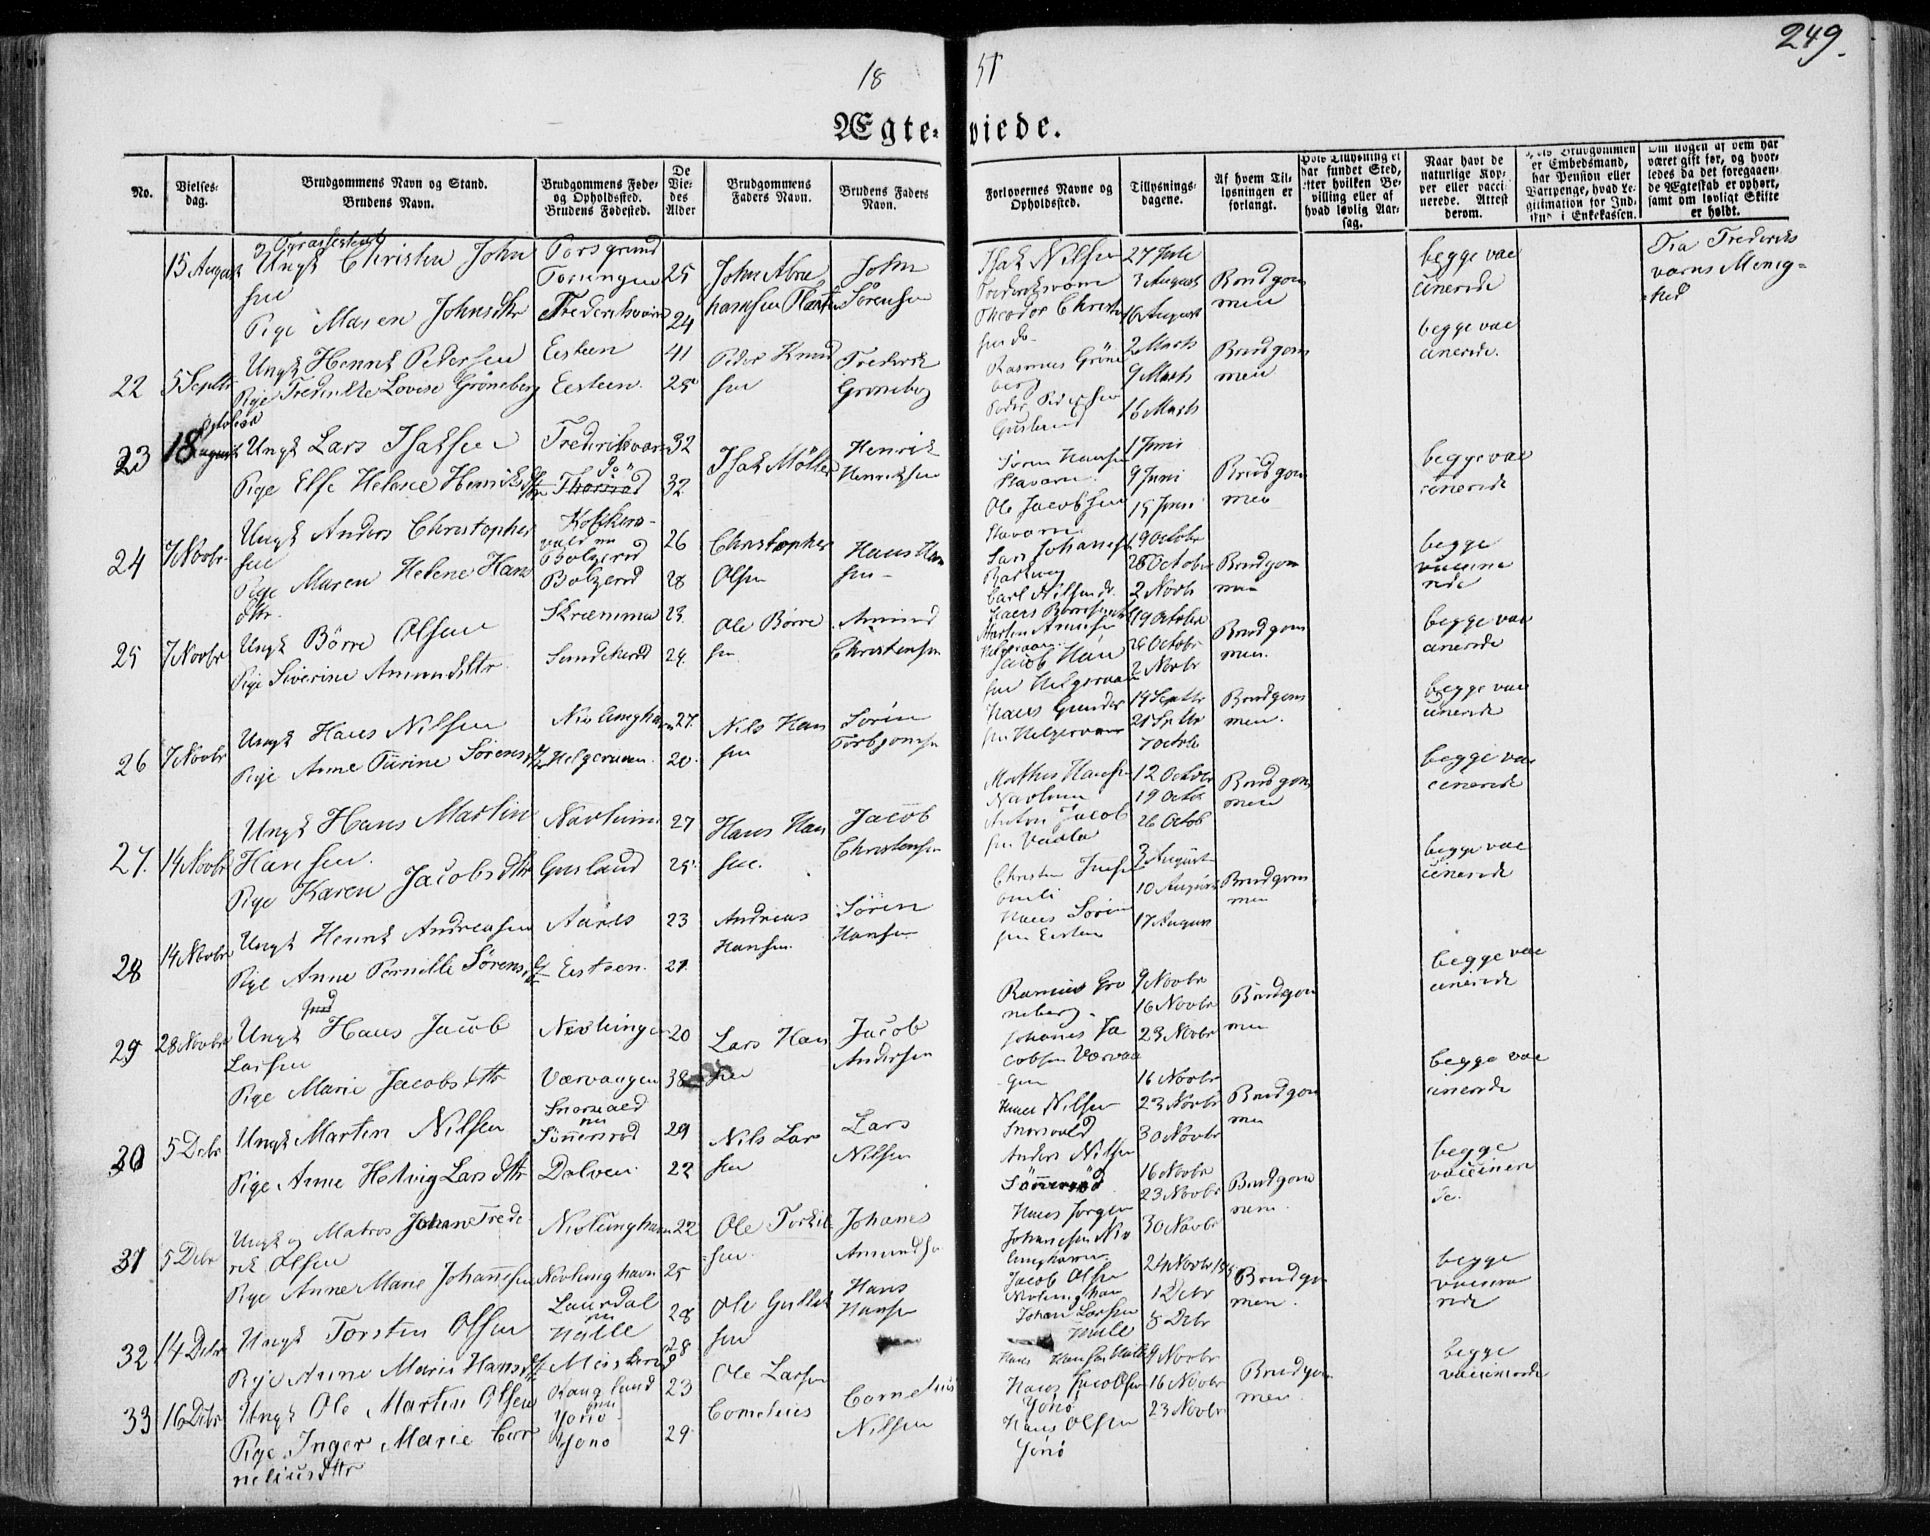 249.
18 51
Ægte- viede.
No.
Vielses-
dag.
Brudgommens Navn og Stand.
Brudens Navn.
Brudgommens Føde-
og Opholdssted.
Brudens Fødested.
De
Vie-
des
Alder
Brudgommens
Faders Navn.
Brudens Faders
Navn.
Forlovernes Navne og
Opholdssted.
Tillysnings-
dagene.
Af hvem Til-
lysningen er
forlangt.
Hvis Tillysning ei
har fundet Sted,
efter hvilken Be-
villing eller af
hvad lovlig Aar-
sag.
Naar havt de
naturlige Kop-
per eller vacci-
nerede. Attest
derom.
Hvis Brudgommen
er Embedsmand,
har Pension eller
Vartpenge, hvad Le-
gitimation for Ind-
skud i Enkekassen.
Om nogen af dem har
været gift før, og hvor-
ledes da det foregaaen-
de Ægteskab er ophørt,
samt om lovligt Skifte
er holdt.
15 August
Ungk Christen John
sen
Pige Maren Johnsdtr
Porsgrund
Fredriksværn
25
24
John Abra
hamsen
John
Sörensen
Isak Nilsen
Frederiksværn
Theodor Christ
sen do
27 Juli
3 August
10 August
Brudgom
men
begge vac
cinerede
Fra Frederiks
værns Menig-
hed
22
5 Septbr
Ungk Henrik Pedersen
Pige Fredrikke Lovise Gröneberg
Eisteen
Eisteen.
41
25
Peder Knud
sen
Frederik
Groneberg
Rasmus Gröne
berg
Peder Pedersen
Gusland
2 Marts
9 Marts
16 Marts
Brudgom
men
begge vac
cinerede.
23
18 October
Ungk Lars Isaksen
Pige Else Helene Henriksdtr
Frederiksværn
do
32
32
Isak Möller
Henrik
Henriksen
Sören Hansen
Staværn.
Ole Jacobsen
Staværn
1 Juni
9 Juni
15 Juni
Brudgom
men
begge vac
cinerede
24
7 Novbr.
Ungk Anders Christopher
sen
Pige Maren Helene Hans
dtr.
Bolgerød
Bolgerod
26
28
Christopher
Olsen
Hans Han
sen
Lars Johansen
Carl Nilsen do.
19 October
26 October
2 Novb
Brudgom
men
begge
vaccine
rede
25
7 Novbr
Ungk Börre Olsen
Pige Severine Amundsdtr
Skræmma
Sundekerød
23
24.
Ole Börre
sen
Amund
Christensen
Helgeraaen
Jacob Han
sen Helgeraaen
19 October
26 Octobr
2 Novbr
Brudgom
men.
begge vac
cinerede
26
7 Novbr
Ungk Hans Nilsen
Pige Anne Turine Sörensdtr
Nevlunghavn
Helgeraaen.
27.
20.
Nils Han
sen
Sören
Torbjörnsen
Hans Gunder
sen Helgeraaen
19 Septbr
21 Septbr
7 Octob
Brudgom
men.
begge vac
cinerede
27.
14 Novbr
Ungk Hans Martin
Hansen.
Pige Karen Jacobsdtr
Navlum
Gusland
27
25
Hans Han
sen.
Jacob
Christensen
Mathis Hansen
Navlum
Anton Jacob
sen
12 October
19 Octob
26 Octob
Brudgom
men
begge vac
cinerede
28
14 Novbr
Ungk Henrik Andreasen
Pige Anne Pernille Sörensdtr
Aarös
Eisteen.
23
21.
Andreas
Hansen.
Sören
Hansen
Christen
Hans Sören
sen Eisteen
3 August
10 August
17 August
Brudgom
men
begge vac
cinerede
29
28 Novbr
Ungk Hans Jacob
Larsen
Pige Marie Jacobsdtr
Nevlungen
Værvaagen
20
38
Lars Han
sen
Jacob
Andersen
Rasmus Gro
neberg.
Johannes Ja
cobsen Værvaa
gen
9 Novbr
16 Novbr
23 Novbr
Brudgom
men
begge vac
cinerede
30
5 Debr
Ungk Martin Nilsen
Pige Anne Helvig Larsdtr
Sönnersrød
Dolven
29
22
Nils Lar
sen
Lars
Nilsen
Hans Nilsen
Anders Nilsen
Sönnersrød
16 Novbr
23 Novbr
30 Novbr
Brudgom
men
begge vac
cinerede
31
5 Debr
Ungk og Matros Johan Frede
rik Olsen
Pige Anne Marie Johannesen
Nevlunghavn
Nevlunghavn
22
25
Ole Torkil
sen
Johanes
Amundsen
Hans Jörgen
Johannesen Nev
lunghavn
Jacob Olsen
Nevlunghavn
16 Novbr
23 Novbr
30 Novbr
Brudgom
men.
begge
vaccinere
de.
32
14 Debr
Ungk Torsten Olsen
Pige Anne Marie Hansdtr
Laurdal
Halle
28
28
Ole Gullik
sen
Hans
Hansen
Johan Larsen
Halle
24 Novbr
1 Debr
8 Debr
Brudgom
men.
begge
vaccine
rede
33
16 Debr
Ungk Ole Martin Olsen
Pige Inger Marie Cor
neliusdtr
Jono
Jono
23
29
Ole Larsen
Cornelius
Cornelius
Nilsen
Hans Jacobsen
Jono
Hans Olsen
Jono
9 Novbr
16 Novbr
23 Novbr
Brudgom
men
begge
vaccinerede